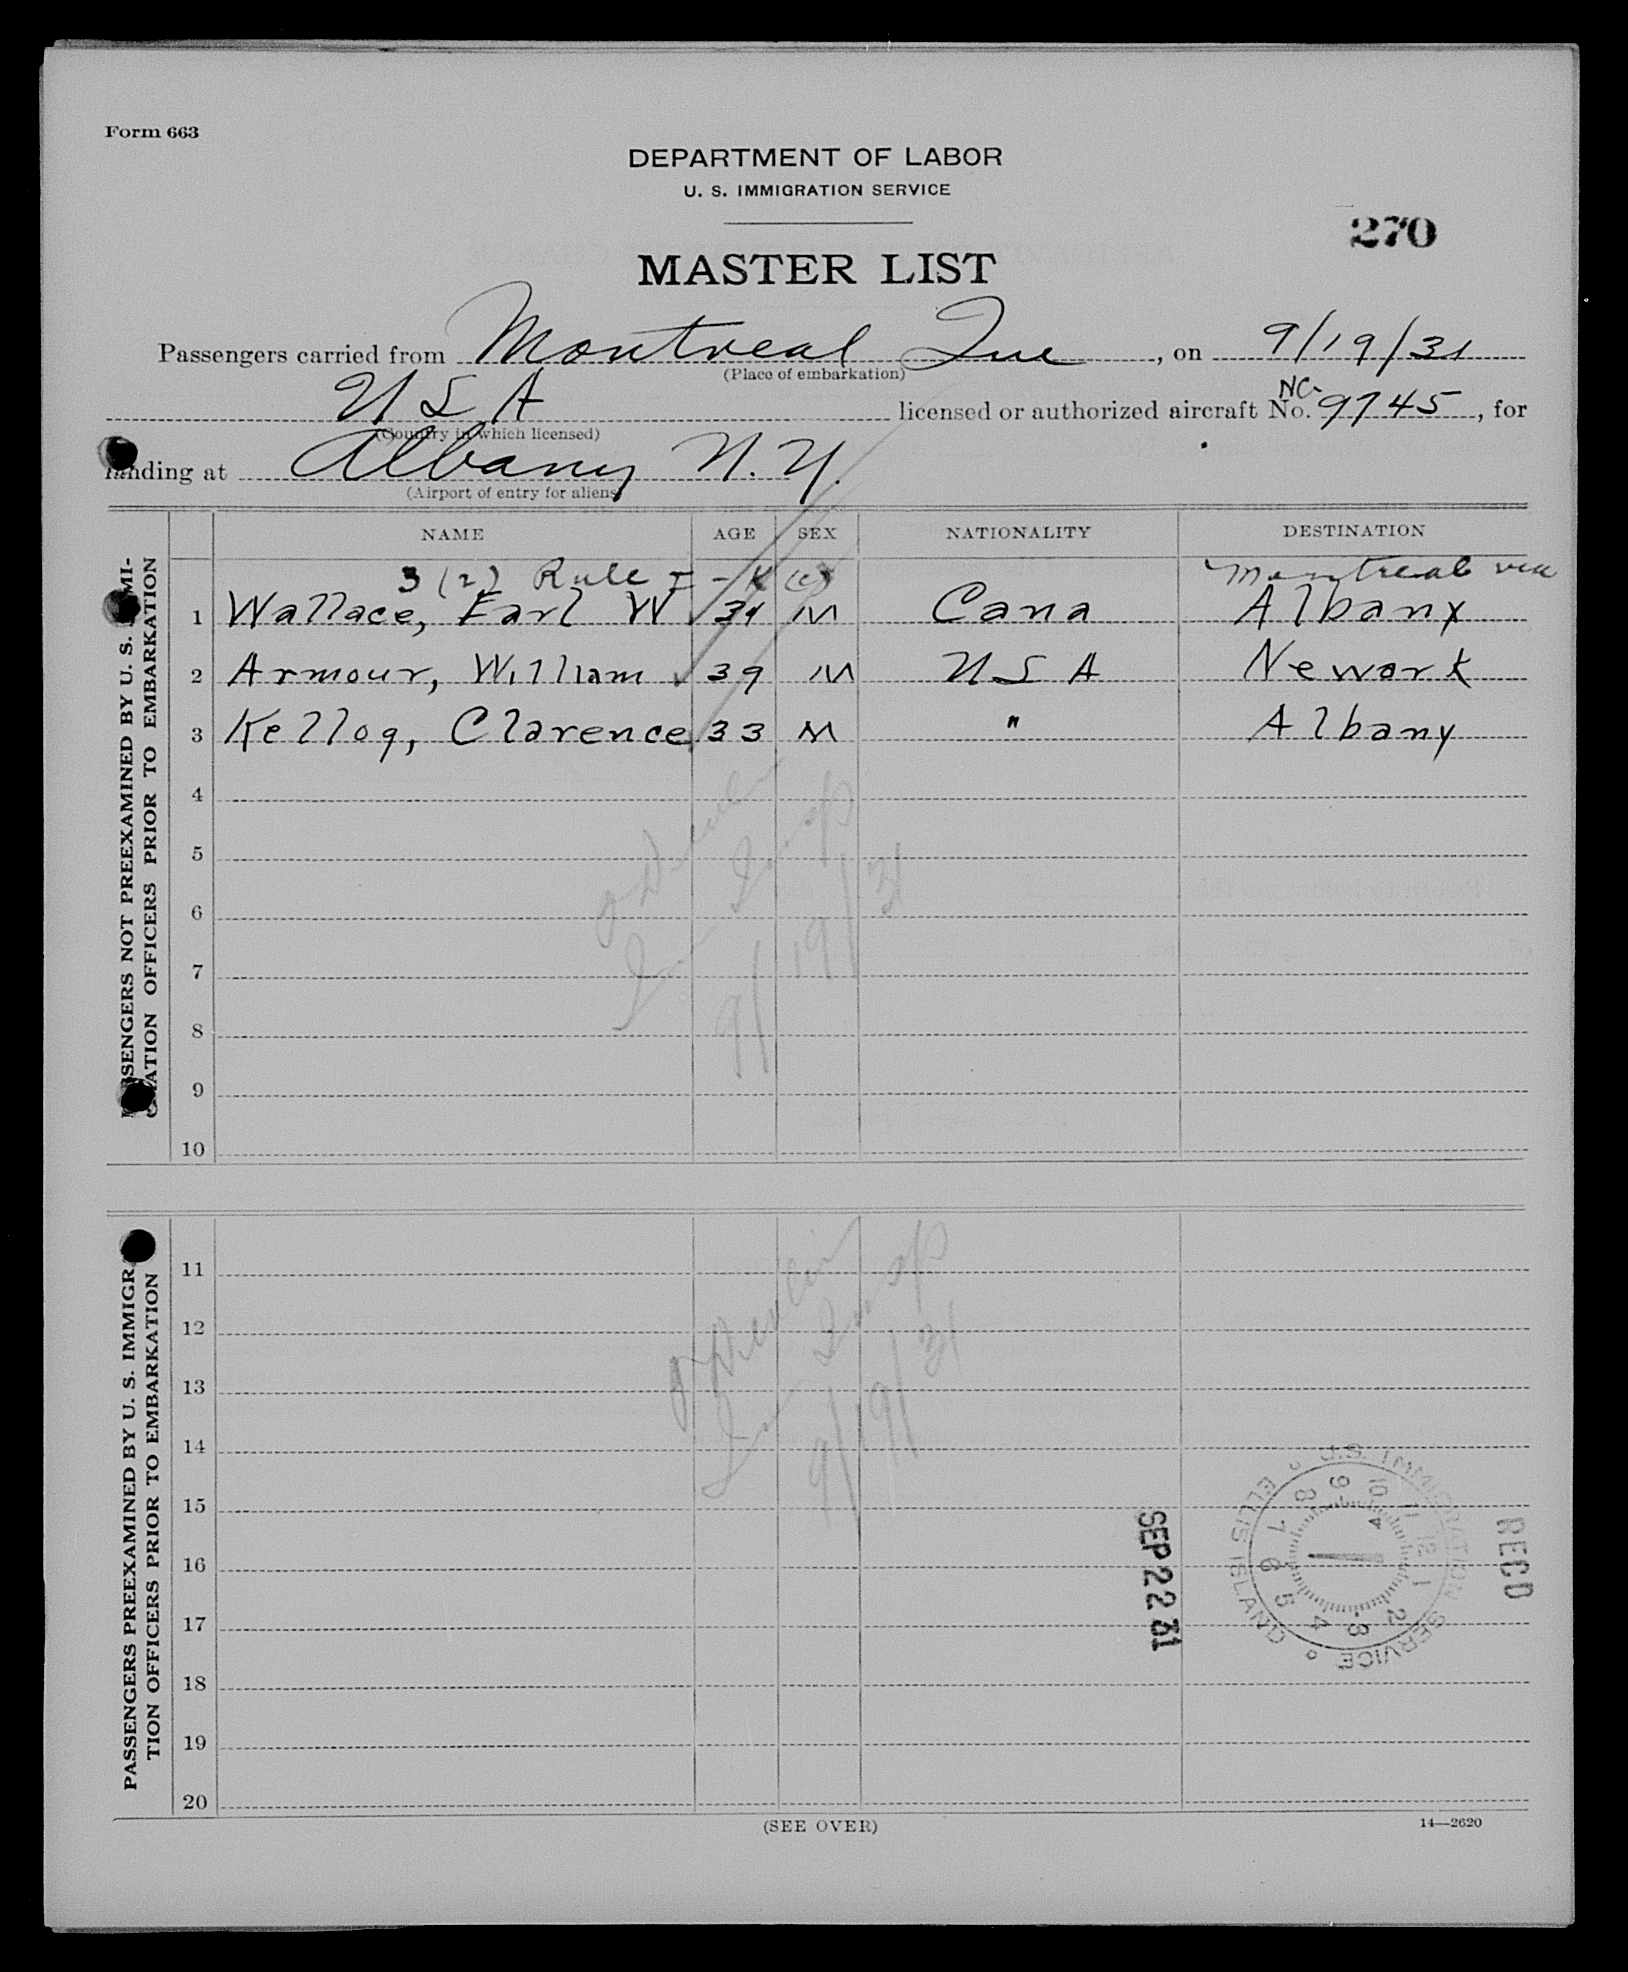 Form 663
DEPARTMENT OF LABOR
U. S. IMMIGRATION SERVICE
270
MASTER LIST
Passengers carried from Montreal Que, on 9/19/31
(Place of embarkation)
U S A licensed or authorized aircraft No. NC 9745, for
(Country in which licensed)
landing at Albany N.Y.
(Airport of entry for aliens)
NAME AGE SEX NATIONALITY DESTINATION
3 (2) Rule I - K (c) Montreal via
1 Wallace, Earl W ✓ 34 M Cana Albany
2 Armour, William ✓ 39 M U S A Newark
3 Kellog, Clarence 33 M " Albany
4
5
6
7
8
9
10
PASSENGERS NOT PREEXAMINED BY U. S. IMMI-
GRATION OFFICERS PRIOR TO EMBARKATION
Devlin
Im Insp
9/19/31
11
12
13
14
15
16
17
18
19
20
PASSENGERS PREEXAMINED BY U. S. IMMIGRA-
TION OFFICERS PRIOR TO EMBARKATION
Devlin
Im Insp
9/19/31
SEP 22 31
U.S. IMMIGRATION SERVICE
ELLIS ISLAND
1 2 3 4 5 6 7 8 9 10 11 12
RECD
(SEE OVER)
14—2620